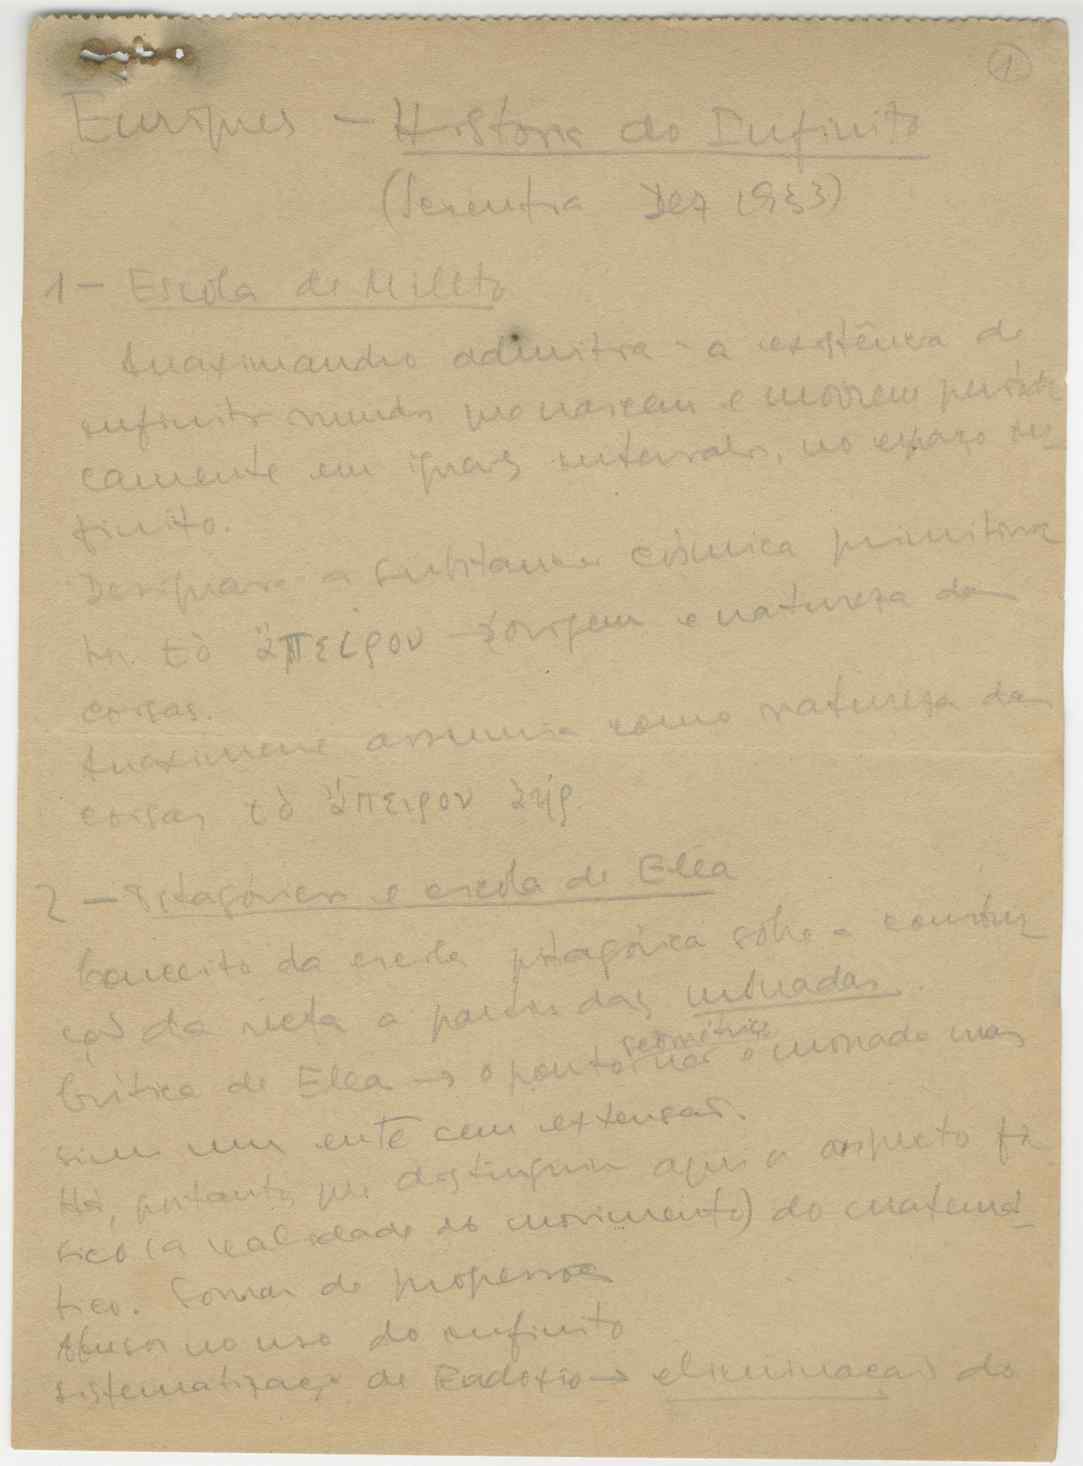 1
Enriques — História do Infinito
(Scientia Dez 1933)
1 — Escola de Mileto
Anaximandro admitia a existência de
infinitos mundos que nascem e morrem periòdi
camente em iguais intervalos, no espaço in_
finito.
Designava a substancia cósmica primitiva
por τὸ ἄπειρον → origem e natureza das
coisas.
Anaximene assumia como natureza das
coisas τὸ ἄπειρον ἀήρ
2 — Pitagóricos e escola de Elêa
Conceito da escola pitagórica sôbre a constru_
ção da recta a partir das mónadas.
geométrico
Crítica de Elea → o ponto não é monada mas
sim um ente sem extensão.
Há, portanto, que distinguir aqui o aspecto fí_
sico (a realidade do movimento) do matemá_
tico. Somas de progressões
Abusos no uso do infinito
sistematização de Eudoxio → eliminação do